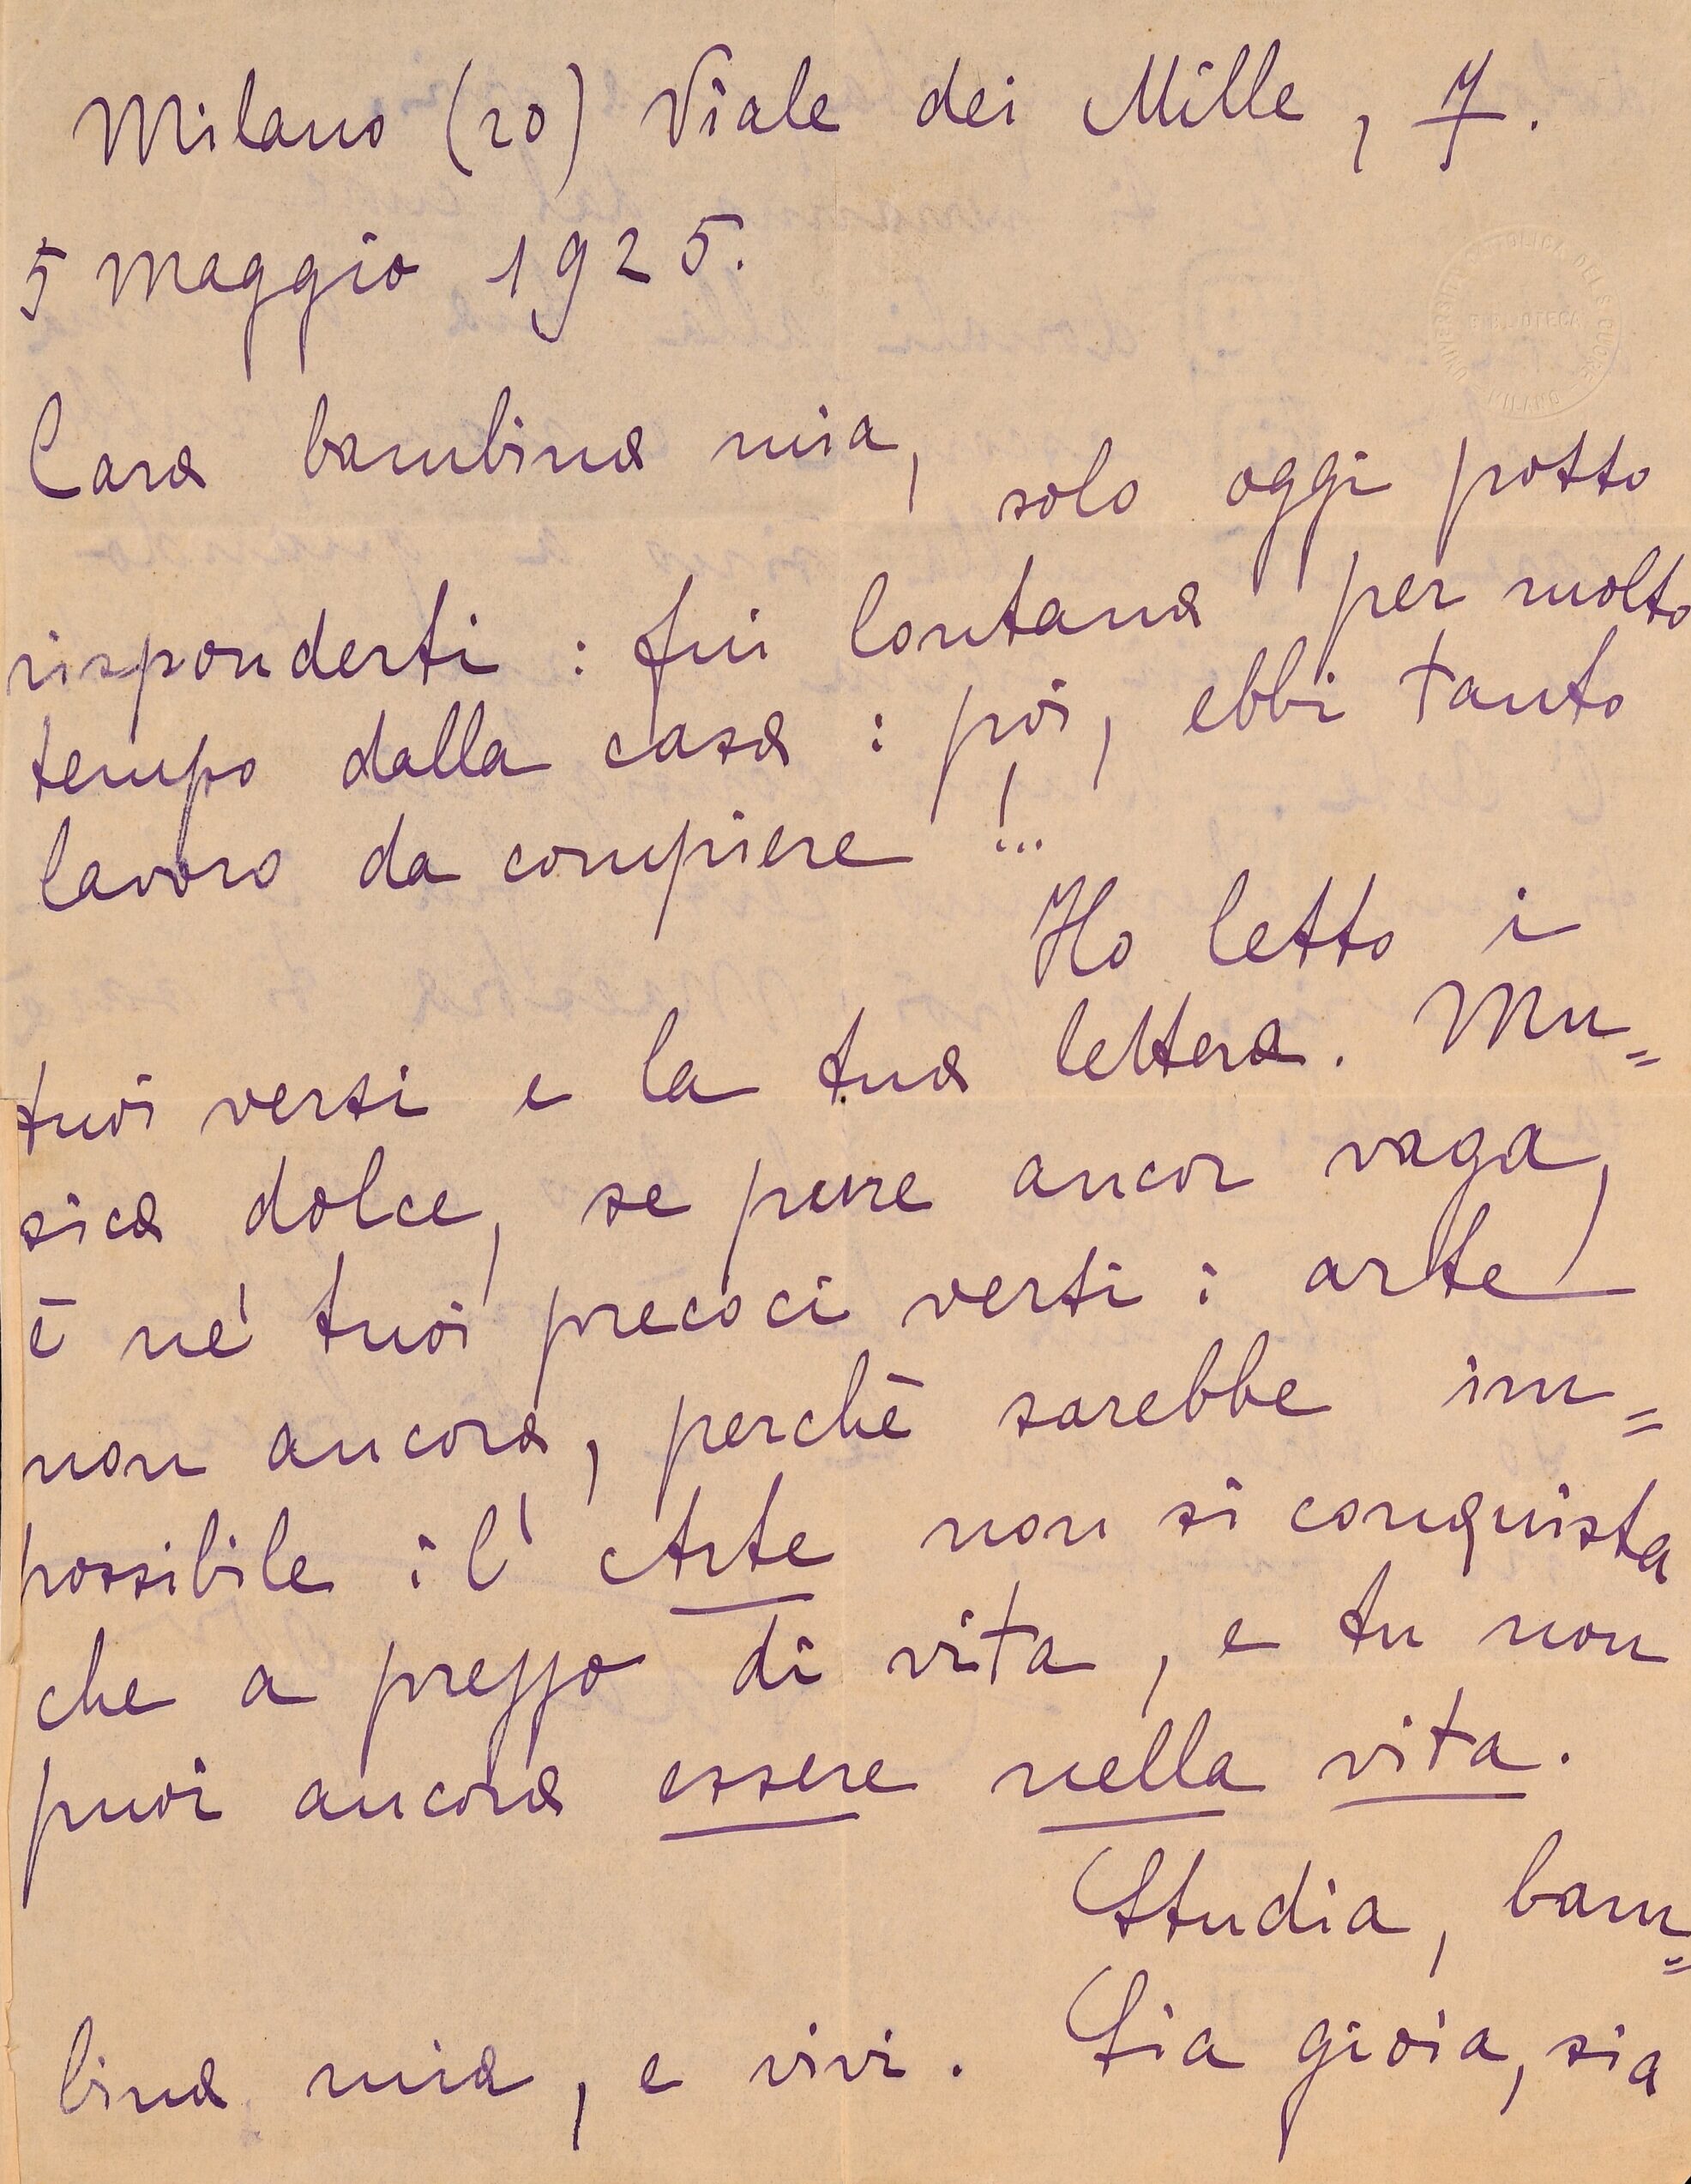 Milano (20) Viale dei Mille, 7.
5 maggio 1925.
Cara bambina mia, solo oggi posso
risponderti : fui lontana per molto
tempo dalla casa : poi, ebbi tanto
lavoro da compiere !...
Ho letto i
tuoi versi e la tua lettera. Mu=
sica dolce, se pure ancor vaga,
è ne' tuoi precoci versi : arte
non ancora, perchè sarebbe im=
possibile : l'Arte non si conquista
che a prezzo di vita, e tu non
puoi ancora essere nella vita.
Studia, bam=
bina mia, e vivi. Sia gioia, sia
UNIVERSITÀ CATTOLICA DEL S. CUORE - MILANO
BIBLIOTECA